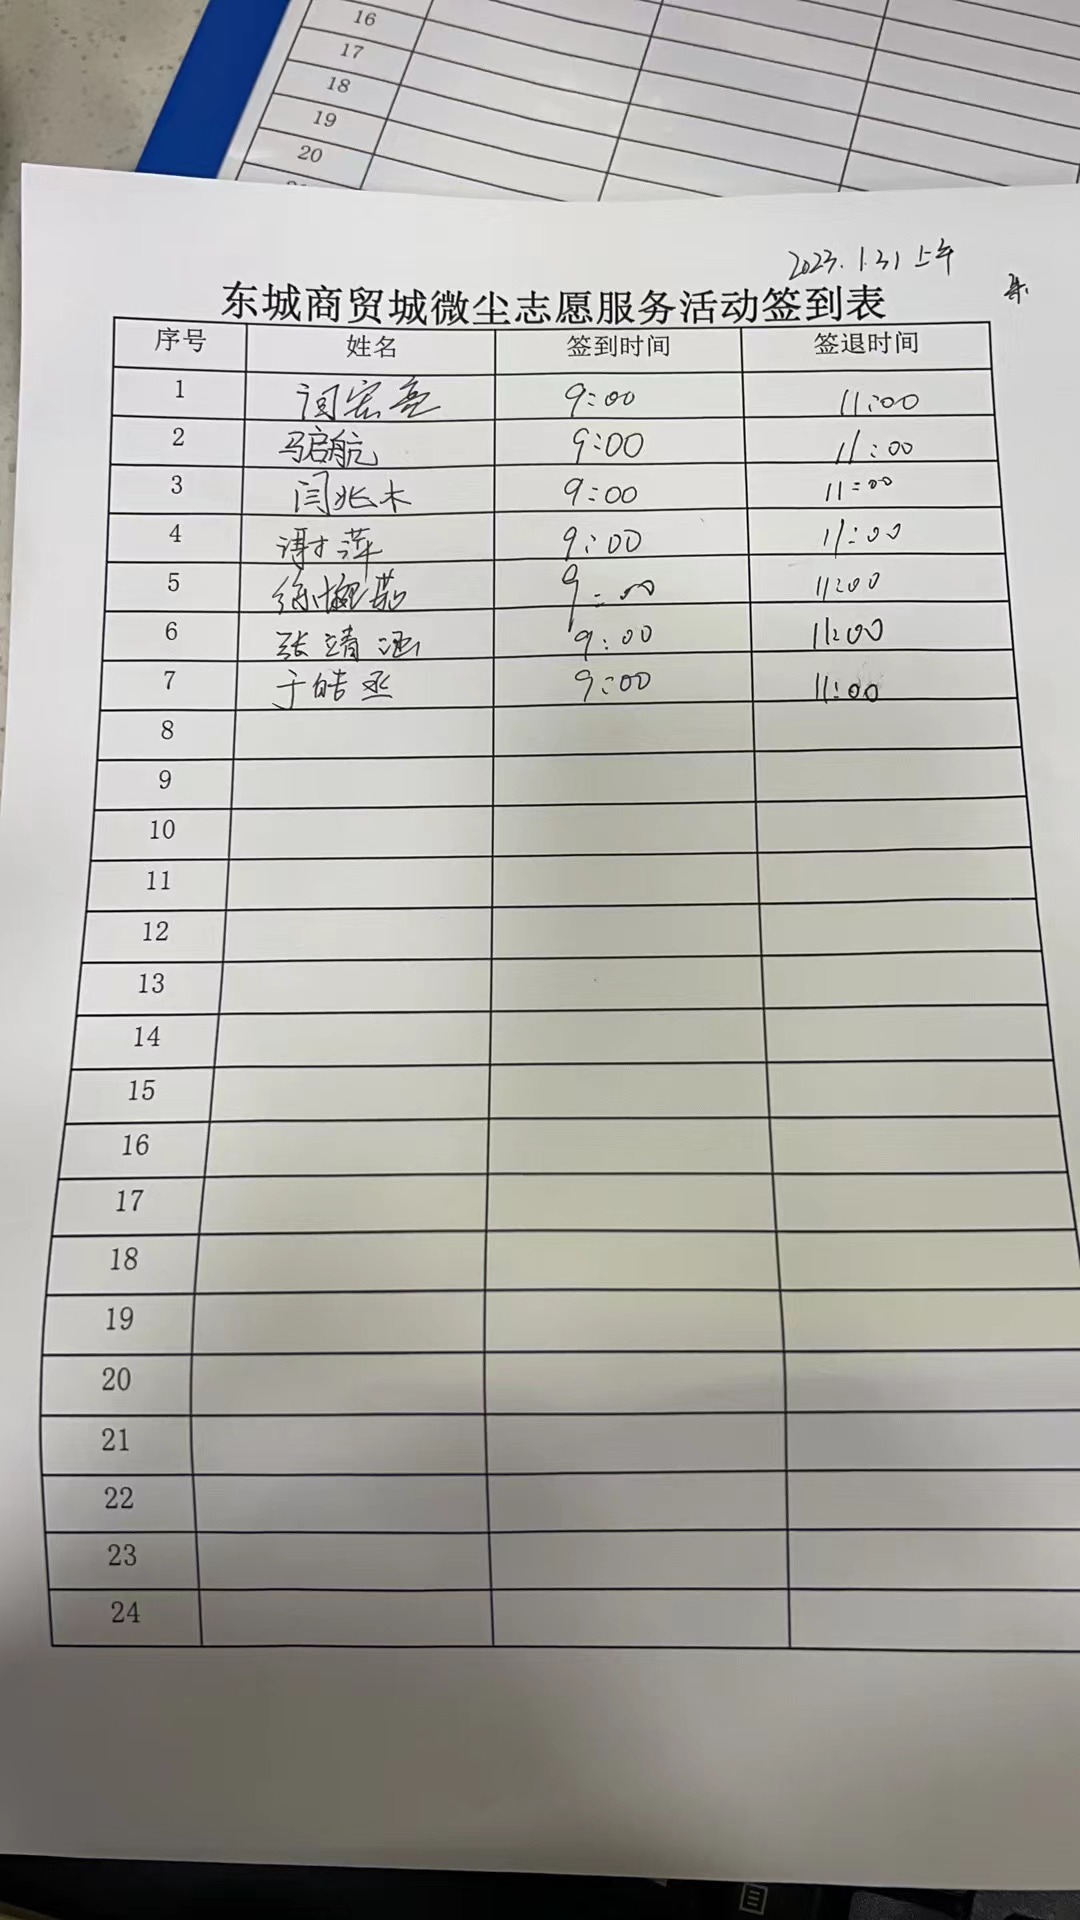 16
17
18
19
20
2023.1.31上午
东城商贸城微尘志愿服务活动签到表
序号 姓名 签到时间 签退时间
1 闫宏亮 9:00 11:00
2 马启航 9:00 11:00
3 闫兆木 9:00 11:00
4 谢萍 9:00 11:00
5 9:00 11:00
6 张靖涵 9:00 11:00
7 于皓丞 9:00 11:00
8
9
10
11
12
13
14
15
16
17
18
19
20
21
22
23
24